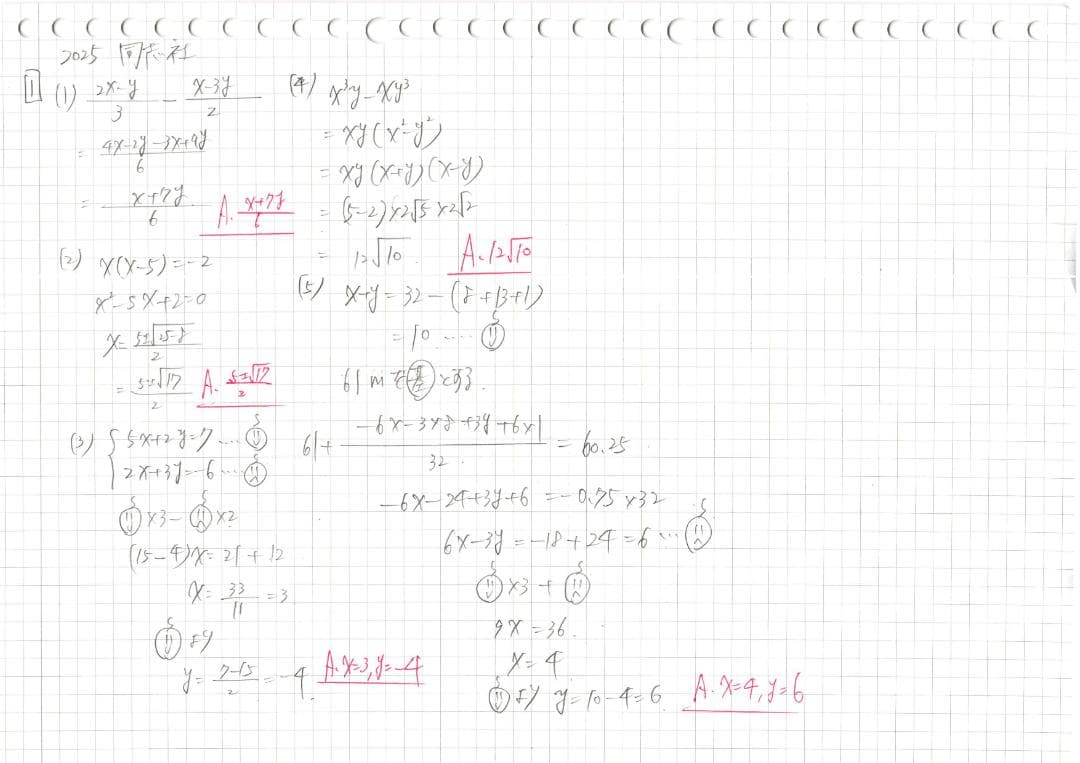 2025 同志社
1
(1) (2x-y)/3 - (x-3y)/2
= (4x-2y-3x+9y)/6
= (x+7y)/6
A. (x+7y)/6
(2) x(x-5)=-2
x²-5x+2=0
x= (5±√25-8)/2
= (5±√17)/2
A. (5±√17)/2
(3) { 5x+2y=7 ...
2x+3y=-6 ...
×3- ×2
(15-4)x=21+12
x= 33/11 =3
より
y= (7-15)/2 =-4
A. x=3, y=-4
(4) x³y-xy³
= xy(x²-y²)
= xy(x+y)(x-y)
= (5-2)×2√5×2√2
= 12√10
A. 12√10
(5) x+y=32-(8+13+1)
=10 ....
61mを基とする.
61+ (-6x-3×8+3y+6×1)/32 = 60.25
-6x-24+3y+6 =-0.75×32
6x-3y=-18+24=6 ...
×3 +
9x=36.
x=4
より y=10-4=6.
A. x=4, y=6